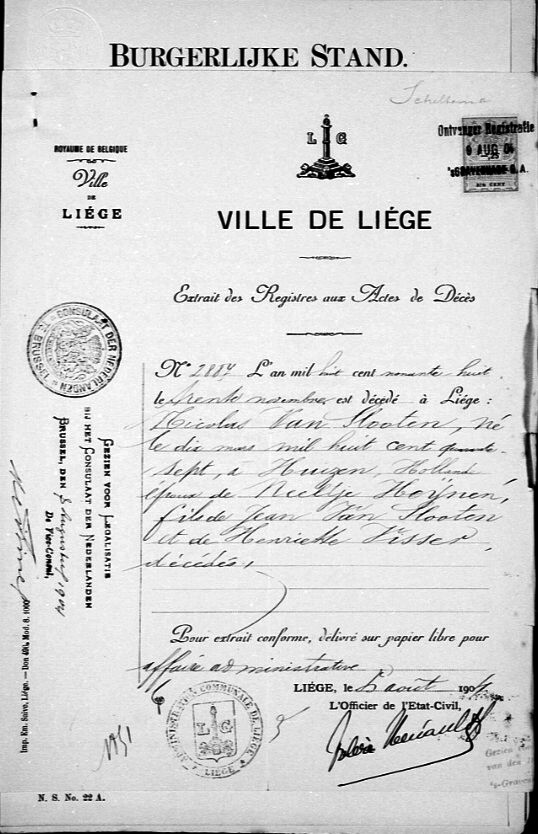 BURGERLIJKE STAND.
Schellema
ROYAUME DE BELGIQUE
Ville
DE
LIÉGE
L G
Ontvanger Registratie
9 AUG 04
'sGRAVENHAGE B. A.
VILLE DE LIÉGE
Extrait des Registres aux Actes de Décès
CONSULAAT DER NEDERLANDEN
TE BRUSSEL
N° 2887 L'an mil huit cent nonante huit
le trente novembre est décédé à Liége:
Nicolas Van Slooten, né
le dix mars mil huit cent quarante
sept, à Huizen, Hollande
époux de Neeltje Hoÿnen,
fils de Jean Van Slooten
et de Henriette Visser,
décédés,
GEZIEN VOOR LEGALISATIE
BIJ HET CONSULAAT DER NEDERLANDEN
BRUSSEL, DEN 8 Augustus 1904
De Vice-Consul,
Pour extrait conforme, délivré sur papier libre pour
affaire administrative
LIÉGE, le 5 août 1904
L'Officier de l'Etat-Civil,
ADMINISTRATION COMMUNALE DE LIÉGE
L G
LIÉGE
1951
Gezien
van den
's-Graven
Imp. Em. Suivo, Liége. — Don 494. Mod. 8. 1900
N. S. No. 22 A.